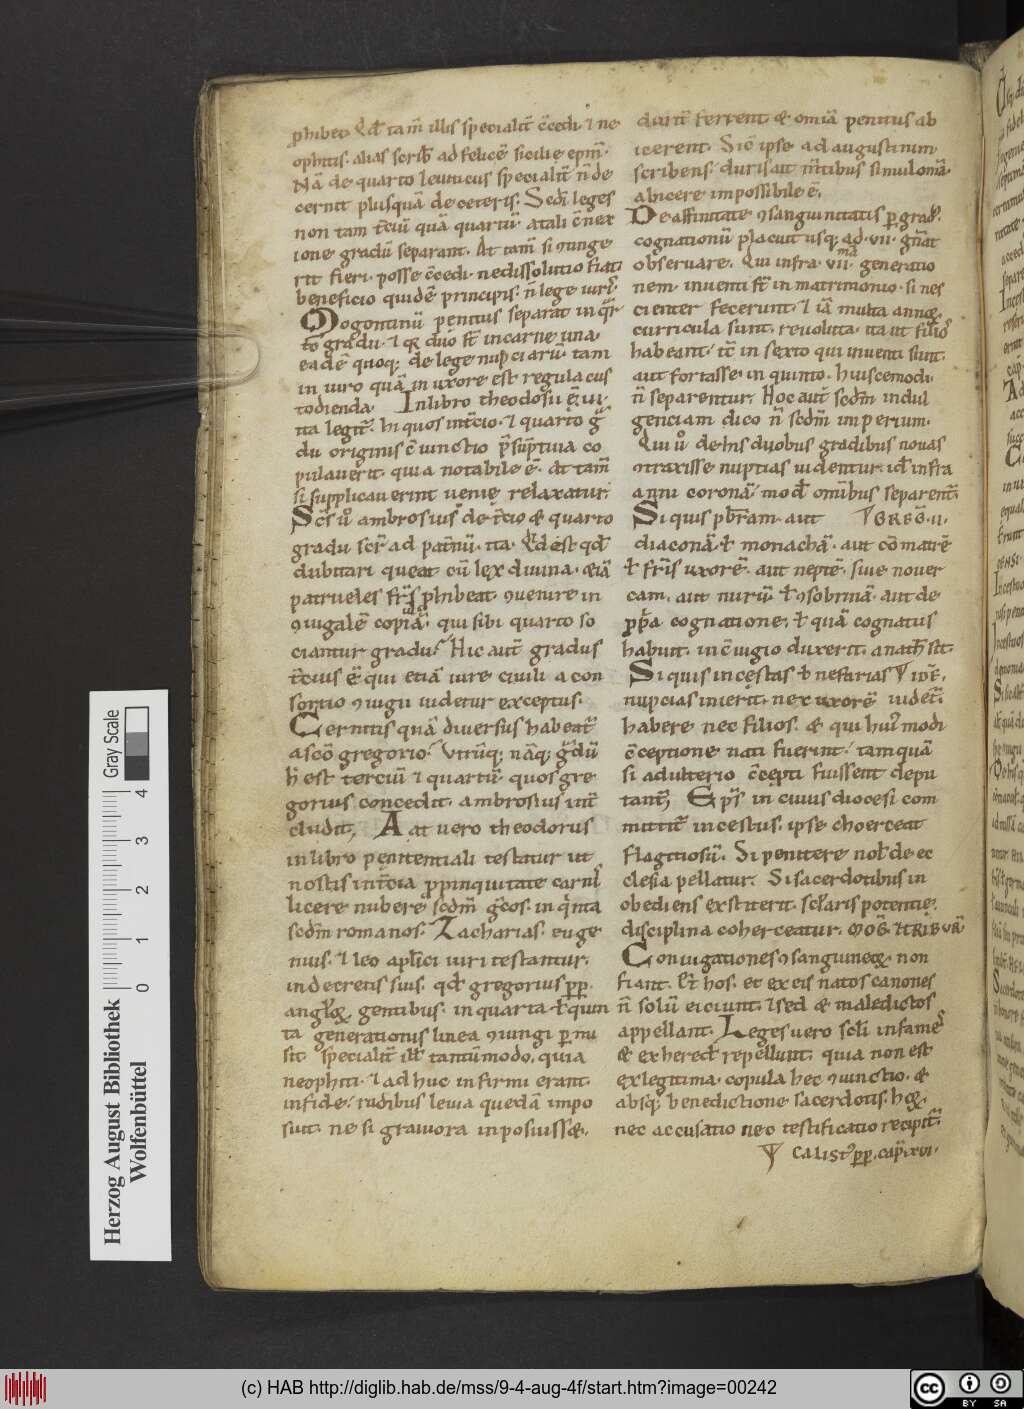 phibet. Qđ tam̄ illis specialit̄ c̄cedi. ⁊ ne
ophitis. alias scribit̄ ad felicē sicilie ep̄m.
Nā de quarto leuiticus specialit̄ n̄ de
cernit plusquā de ceteris. Sed ⁊ leges
non tam t̄ciū quā quartū a tali c̄nex
ione gradū separant. At tam̄ si ꝯiunge
rit fieri. posse c̄cedi. ne dissolutio fiat
beneficio quidē principis. n̄ lege iuris.
Mogontinū penitus separat in q̄r
to gradu. ⁊ qr duo st̄ in carne una.
eadē quoq; de lege nupciarū. tam
in uiro quā in uxore est regula cus
todienda. In libro theodosii
ita legit̄. In quos int̄cio. ⁊ quarto g̃
du originis ē iunctio p̄sūptiua co
pulauerit. quia notabile ē. at tam̄
si supplicauerint uenie relaxatur.
Sc̄s ů ambrosius de t̄cio & quarto
gradu scr̄ ad pat̄nū. ita. Qđ est qđ
dubitari queat cū lex diuina. &iā
patrueles fr̄s phibeat. ꝯuenire in
ꝯiugalē copulā. qui sibi quarto so
ciantur gradu. Hic aut̄ gradus
t̄cius ē qui etiā iure ciuili a con
sortio ꝯiugii uidetur exceptus.
Cernitis quā diuersus habeat̄
a sc̄o gregorio. Vtrūq; nāq; g̃dū
h̄ est terciū ⁊ quartū quos gre
gorius concedit. ambrosius int̄
cludit, At uero theodorus
in libro penitentiali testatur ut
nostis in t̄cia ppinquitate carnis
licere nubere scdm̄ g̃cos. in q̇nta
scdm̄ romanos. Zacharias. euge
nius. ⁊ leo aplici iuri testantur.
in decretis suis. qđ gregorius pp.
angloꝝ gentibus. in quarta. ł quin
ta generationis linea ꝯiungi pmi
sit. specialit̄ illꝭ tantūmodo. quia
neophiti. ⁊ adhuc infirmi erant
in fide. rudibus leuia quedā impo
suit. ne si grauiora inposuiss&.
durit̄ ferrent & omīa penitus ab
icerent. Sic ipse ad augustinum
scribens. duris aut m̄tibus simul omīa
abicere impossibile ē.
De affinitate ꝯsanguinitatis p grad̾.
cognationū placuit usq; ad .vii. gn̄at
obseruare. Qui infra .vii.ma generatio
nem. inuenti st̄ in matrimonio. si nes
cienter fecerunt. ⁊ iā multa annoꝝ
curricula sunt. reuoluta. ita ut filios
habeant. t̄c in sexto qui inuenti sunt.
aut fortasse in quinto. huiscemodi.
n̄ separentur. Hoc aut̄ scdm̄ indul
genciam dico n̄ scdm̄ imperium.
Qui ů de his duobus gradibus nouas
ꝯtraxisse nuptias uidentur. id̄ infra
anni coronā. mod̄ omībus separent̄.
Si quis pbr̄am. aut GREG. II.
diaconā. ł monachā. aut cōmatrē
ł fr̄is uxorē. aut neptē. siue nouer
cam. aut nurū ł ꝯsobrinā. aut de
pp̄a cognatione. ł quā cognatus
habuit. in c̄iugio duxerit. anath̄ sit.
Si quis incestas ł nefarias IDĒ.
nupcias inierit. nec uxorē uidet̄
habere nec filios. & qui hui̾modi
c̄ceptione nati fuerint. tamquā
si adulterio c̄cepti fuissent depu
tant̄, Ep̄s in cuius diocesi com
mittit̄ incestus. ipse choerceat
flagitiosū. Si penitere nol̄. de ec
clesia pellatur. Si sacerdotibus in
obediens exstiterit. sclaris potentię.
disciplina coherceatur. MOG. ⁊ TRIBVR̄
Coniugationes ꝯsanguineoꝝ non
fiant. Qt̄ hos. et ex eis natos canones
n̄ solū eiciunt. ⁊ sed & maledictos
appellant. Leges uero scl̄i infames
& exhered̄ repellunt. quia non est
ex legitima. copula hec ꝯiunctio. &
absq; benedictione sacerdotis. hoꝝ
nec accusatio nec testificatio recipit̄.
CALIST̾ pp. cap. xvi.
Herzog August Bibliothek
Wolfenbüttel
0 1 2 3 4
Gray Scale
(c) HAB http://diglib.hab.de/mss/9-4-aug-4f/start.htm?image=00242
cc BY SA